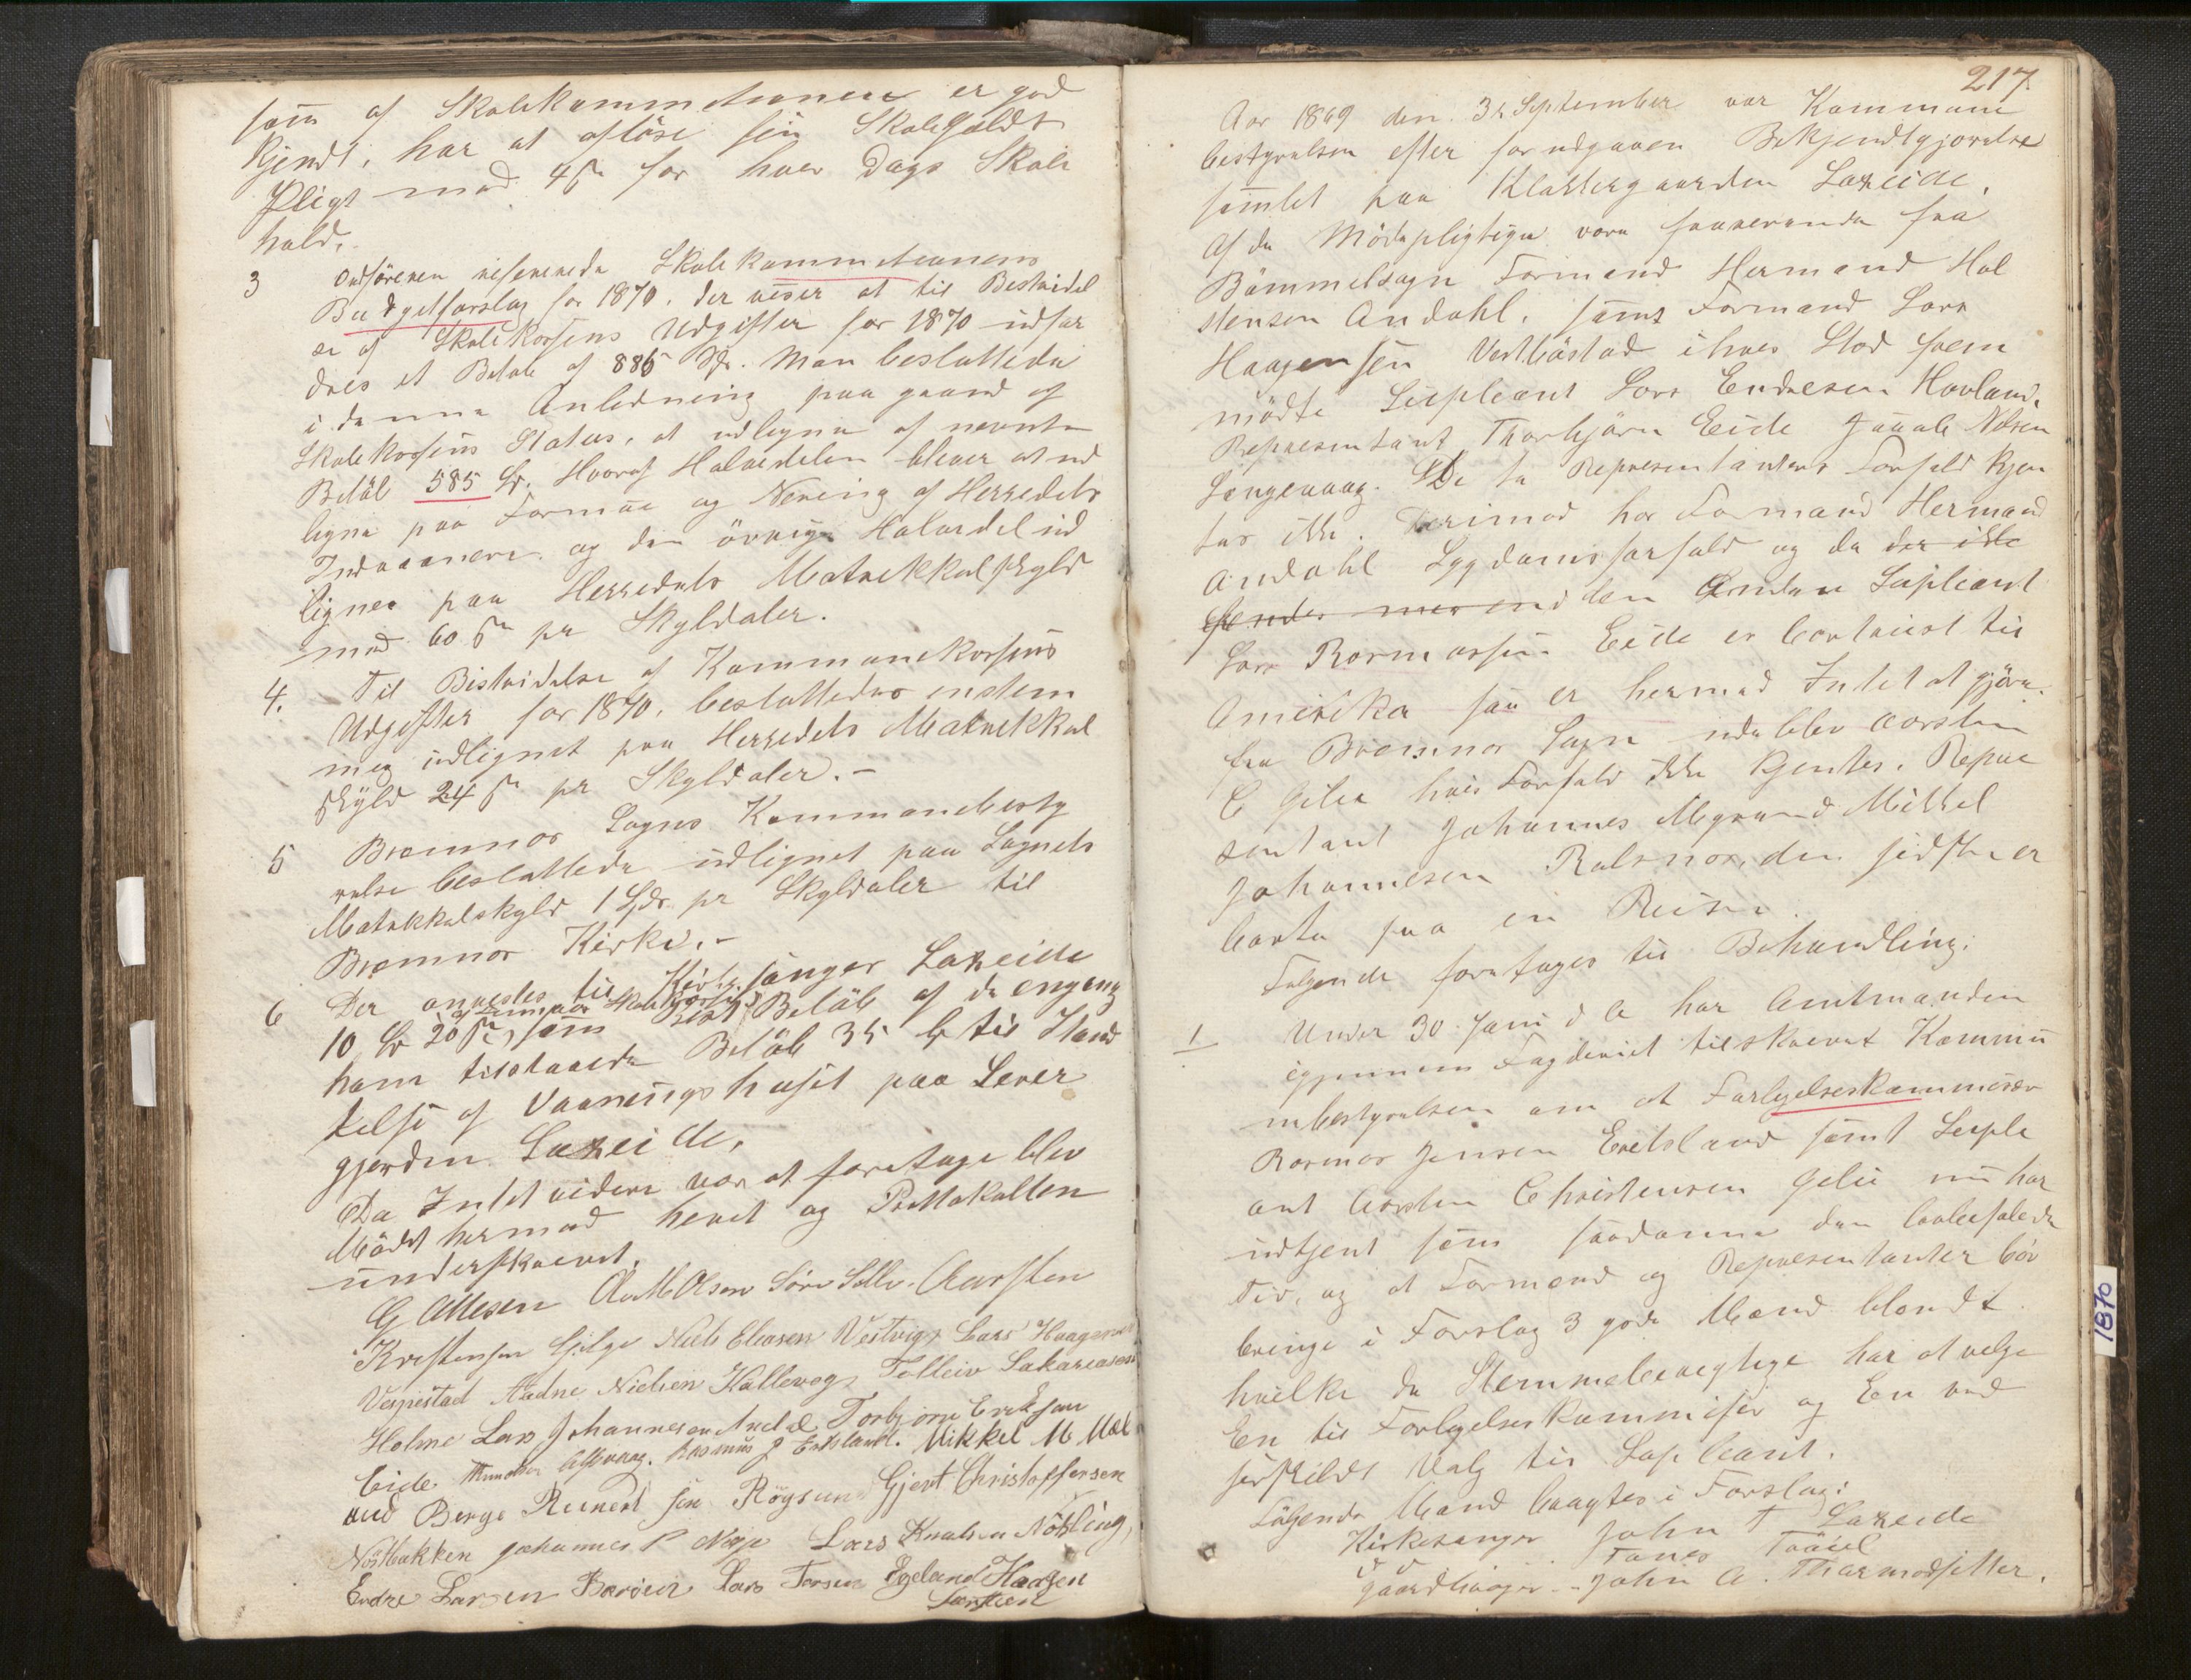 som af Skolekommitionen er god
kjendt, har at aflöse sin Skolegældt
Pligt med 4 s for hver Dags Skole
hold.
3 Ordföreren refererede Skolekommitionens
Budgetforslag for 1870. der viser at til Bestridel
se af Skolekassens Udgifter for 1870 udfor
dres et Beløb af 885 Spd. Man besluttede
i denne Anledning paa grund af
Skolekassens Status, at udligne af nevnte
Belöb 585 Sp. Hvoraf Halvedelen bliver at ud
ligne paa Formue og Nering af Herredets
Indvaanere og den övrige Halvedel ud
lignes paa Herredets Matrikkulskyld
med 60 s pr Skylddaler.
4. Til Bestridelse af Kommunekassens
Udgifter for 1870, besluttedes enstem
mig udlignet paa Herredets Matrikkul
skÿld 24 s pr Skyldaler. -
5 Bremnes Sogns Kommunebesty
relse besluttede udlignet paa Sognets
Matrikkulskyld 1 Spd. pr Skyldaler til
Bremnes Kirke. -
6 Der anvistes til Kirkesanger Laxeide
10 Sp 20 s, som Belöb af de engang
ham tilstaaede Belöb 35 Sp til Istand
sættelse af Vaaningshuset paa Lerer
gjorden Laxeide.
Da Intet videre var at foretage blev
Mödet hermed hevet og Protokollen
underskrevet.
G Attesen O M Olsen Sörv Sello. Aarsten
Kristensen Gjilge Niels Eliasen Vestvig Lars Haagensen
Vespestad Aadne Nielsen Kallevog Tolleiv Sakariasen
Holme Lars Johannesen Andal Torbjörn Eriksen
Eide. Asswaag. Rasmus J Eritsland. Mikkel M Mæl
and Berge Reinert sen Röÿsun Gjert Christoffersen
Nösbakken Johannes P Nesje Lars Knutsen Nötling,
Endre Larsen Baröen Lars Torsen Egeland Haagen
Larssen
217
Aar 1869 den 3d September var Kommune
bestyrelsen efter forudgaaen Bekjendtgjørelse
samlet paa Klokkergaarden Laxeide.
Af de Mödepligtige vare fraverende fra
Bömmelsogn Formand Hermand Hal
stensen Andahl, samt Formand Lars
Haagensen Vestbøstad i hves Sted frem
mödte Supleant Lars Endresen Hovland.
Representant Thorbjörn Eide Jakob Nilsen
Gengevaag. De to Representanters Forfald kjen
tes ikke. Derimod har Formand Hermand
Andahl Sygdomsforfald og da der ikke
sendes mer end den Anden Supleant
Lars Rasmussen Eide er bortreist til
Amerika saa er hermed Intet at gjöre.
fra Bremnes Sogn udeblev Carsten
C Gilie hvis Forfald ikke kjentes. Repre
sentant Johannes Mgrand Mikkel
Johannesen Rolsnos, den sidste er
borte paa en Reise.
Følgende foretages til Behandling:
1 Under 30 Juni d A har Amtmanden
igjennem Fogderiet tilskrevet Kommu
nebestyrelsen om at Forligelseskommissær
Rasmus Jensen Eritsland samt Suple
ant Carsten Christensen Gilie nu har
udtjent som saadanne den lovbefalede
Tid, og at Formænd og Representanter bör
bringe i Forslag 3 gode Mænd blandt
hvilke de Stemmeberegtige har at velge
En til Forligelseskommisær og En ved
serskildt Valg til Supleant.
Fölgende Mænd bragtes i Forslag:
Kirkesanger John T Laxeide
d d Tönes Tösel
Gaardbruger - John A. Thormodsetter.
1870